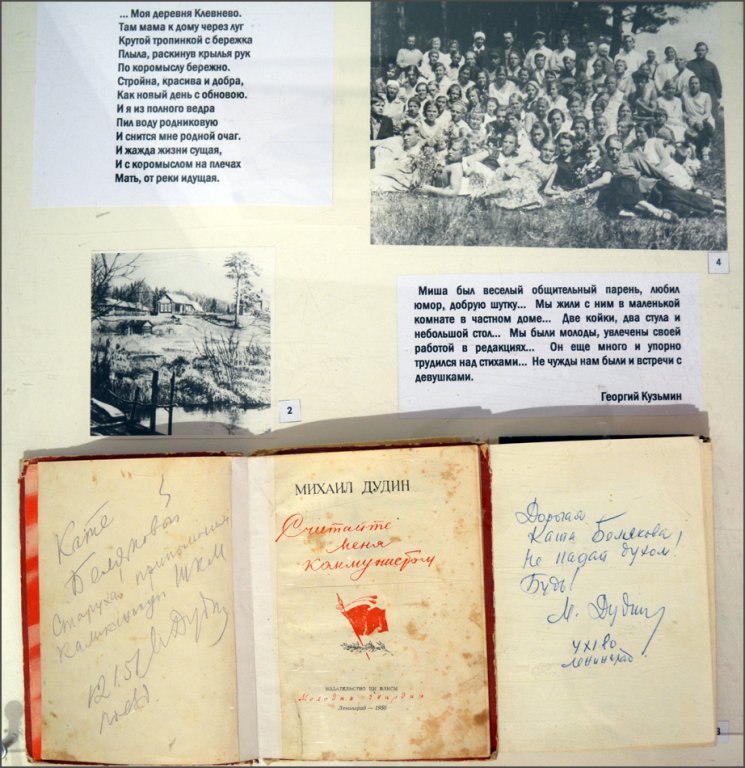 ... Моя деревня Клевнево.
Там мама к дому через луг
Крутой тропинкой с бережка
Плыла, раскинув крылья рук
По коромыслу бережно.
Стройна, красива и добра,
Как новый день с обновою.
И я из полного ведра
Пил воду родниковую
И снится мне родной очаг.
И жажда жизни сущая,
И с коромыслом на плечах
Мать, от реки идущая.
4
Миша был веселый общительный парень, любил
юмор, добрую шутку... Мы жили с ним в маленькой
комнате в частном доме... Две койки, два стула и
небольшой стол... Мы были молоды, увлечены своей
работой в редакциях... Он еще много и упорно
трудился над стихами... Не чужды нам были и встречи с
девушками.
Георгий Кузьмин
2
Кате
Беляковой
ШКМ
М Дудин
МИХАИЛ ДУДИН
Считайте
меня
коммунистом
ИЗДАТЕЛЬСТВО ЦК ВЛКСМ
Молодая гвардия
Ленинград — 1950
Дорогая
Катя Белякова!
Не падай духом!
Будь!
М. Дудин
Ленинград.
3